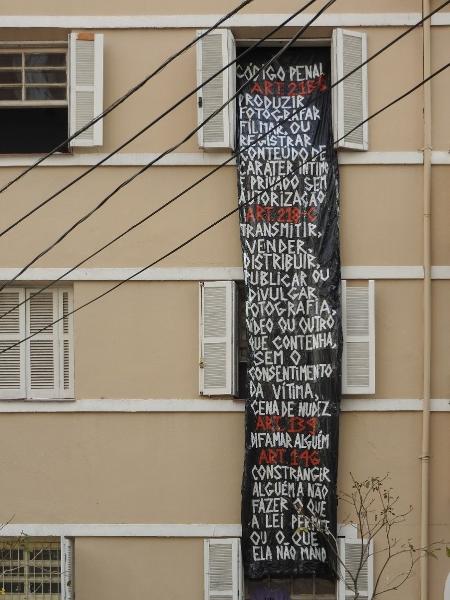 CÓDIGO PENAL
ART. 216-B
PRODUZIR,
FOTOGRAFAR
FILMAR, OU
REGISTRAR
CONTEÚDO DE
CARÁTER ÍNTIMO
PRIVADO SEM
AUTORIZAÇÃO
ART. 218-C
TRANSMITIR,
VENDER,
DISTRIBUIR,
PUBLICAR OU
DIVULGAR
FOTOGRAFIA,
VÍDEO OU OUTRO
QUE CONTENHA,
SEM O
CONSENTIMENTO
DA VÍTIMA,
CENA DE NUDEZ
ART. 139
DIFAMAR ALGUÉM
ART. 146
CONSTRANGER
ALGUÉM A NÃO
FAZER O QUE
A LEI PERMITE
OU O QUE
ELA NÃO MANDA